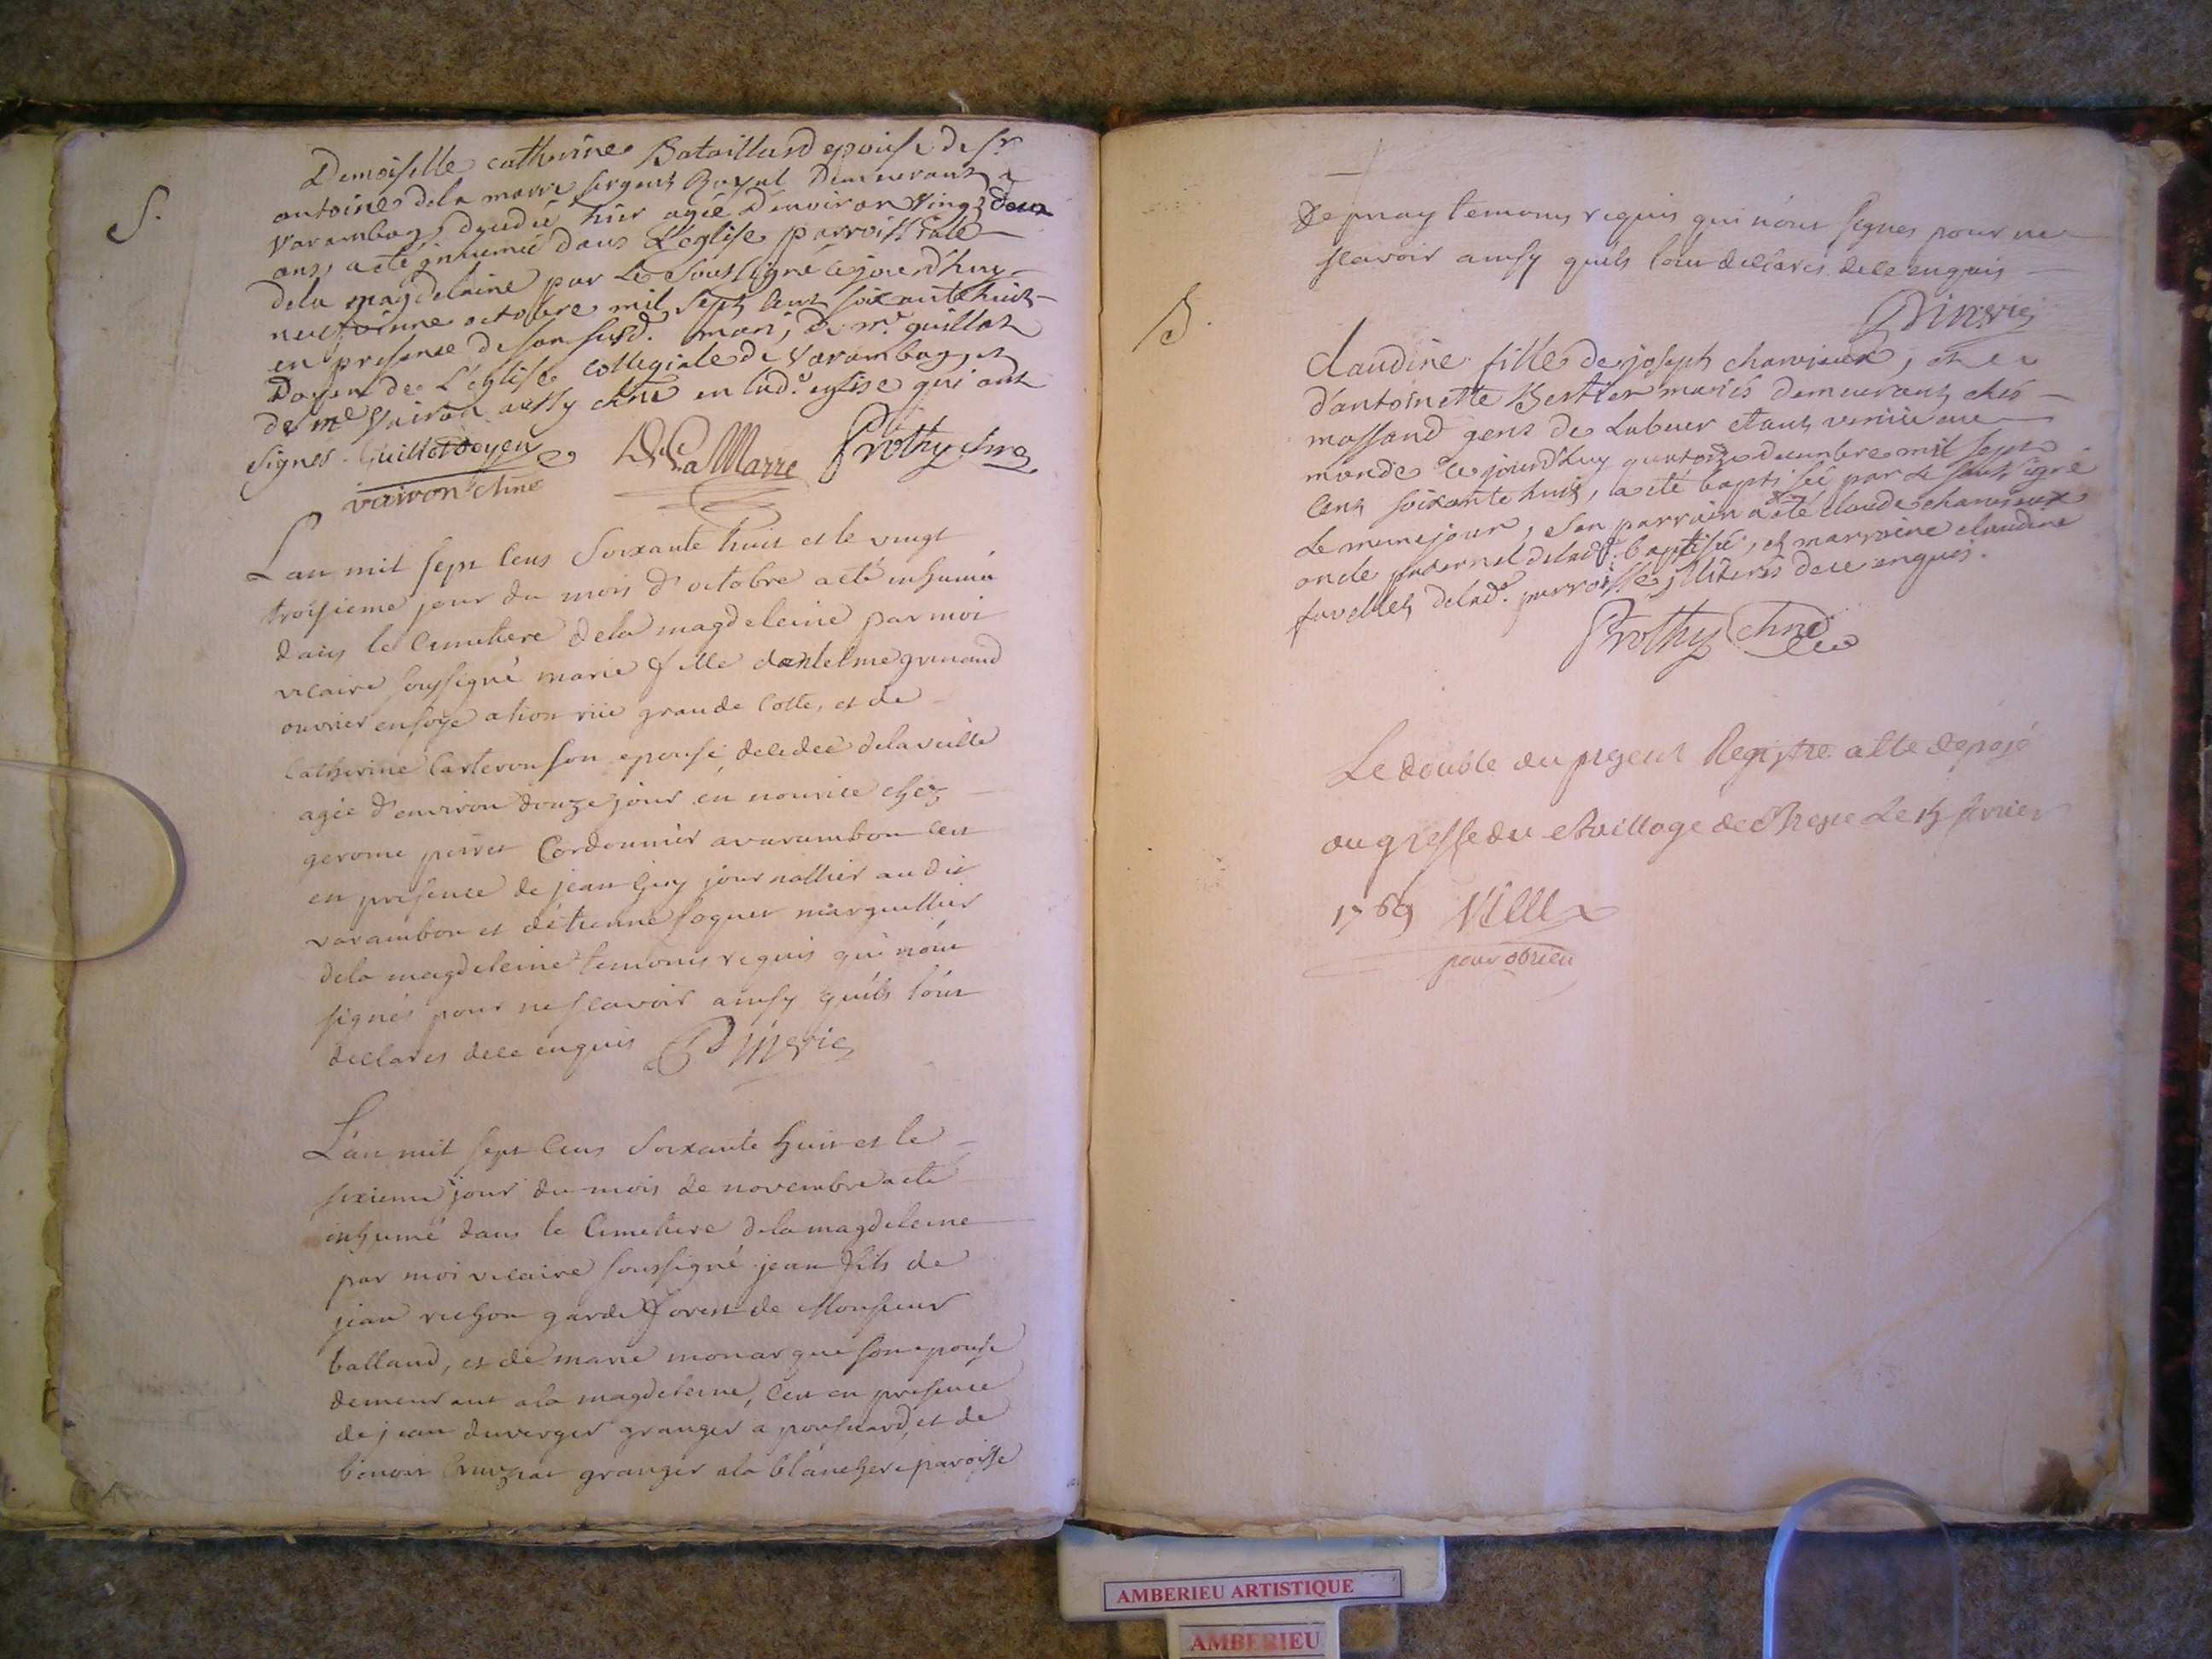 S.
Demoiselle catherine Bataillard epouse de sr
antoine dela marre sergent Royal demeurant a
Varambon, decedée hier agée denviron vingt deux
ans, a eté inhumée dans L'eglise parroissiale
dela magdelaine par Le soussigné cejourd'huy
neufvieme octobre mil sept cent soixante huit
en presence de son susd. mari, de mr. guillot
Doyen de L'église collegiale de Varambon, et
de mre Vairon aussy chne en lad.e eglise qui ont
signés. Guillot doyen De La Marre Prothy chne
vairon chne
L'an mil sept cens soixante huit et le vingt
troisieme jour du mois d'octobre a eté inhumé
dans le cimetiere dela magdeleine par moi
vicaire soussigné marie fille dantelme grimaud
ouvrier en soye a lion rüe grande cotte, et de
catherine Carteron son epouse, decedeé dela veille
agée d'environ douze jour en nourice chez
gerome perret Cordonnier a varambon ceci
en presence de jean guy journallier au dit
varambon et détienne foguet marguillier
dela magdeleine temoins requis qui nont
signés pour ne scavoir ainsy quils l'ont
declarés de ce enquis P Vic
L'an mil sept cens soixante huit et le
sixieme jour du mois de novembre a eté
inhumé dans le Cimetiere dela magdeleine
par moi vicaire soussigné jean fils de
jean richon garde forest de Monsieur
balland, et de marie monarque son epouse
demeurant ala magdeleine, ceci en presence
de jean duverger granger a et de
benoit granger ala blanchere paroisse
de priay temoins requis qui n'ont signes pour ne
scavoir ainsy quils l'ont declarés de ce enquis
B.
Claudine fille de joseph charvieux, et
d'antoinette Bertier mariés demeurants chés
massand gens de Labeur etant venüe au
monde cejourd'huy quatorze decembre mil sept
cent soixante huit, a eté baptisée par Le soussigné
Le meme jour, son parrain a eté claude charvieux
oncle paternel de lad.e baptisée, et marraine claudine
de lad.e parroisse illiterés de ce enquis.
Prothy chne
Le double du present Registre a ete deposé
au greffe du Bailliage de Bresse Le 15 fevrier
1769
AMBERIEU ARTISTIQUE
AMBERIEU